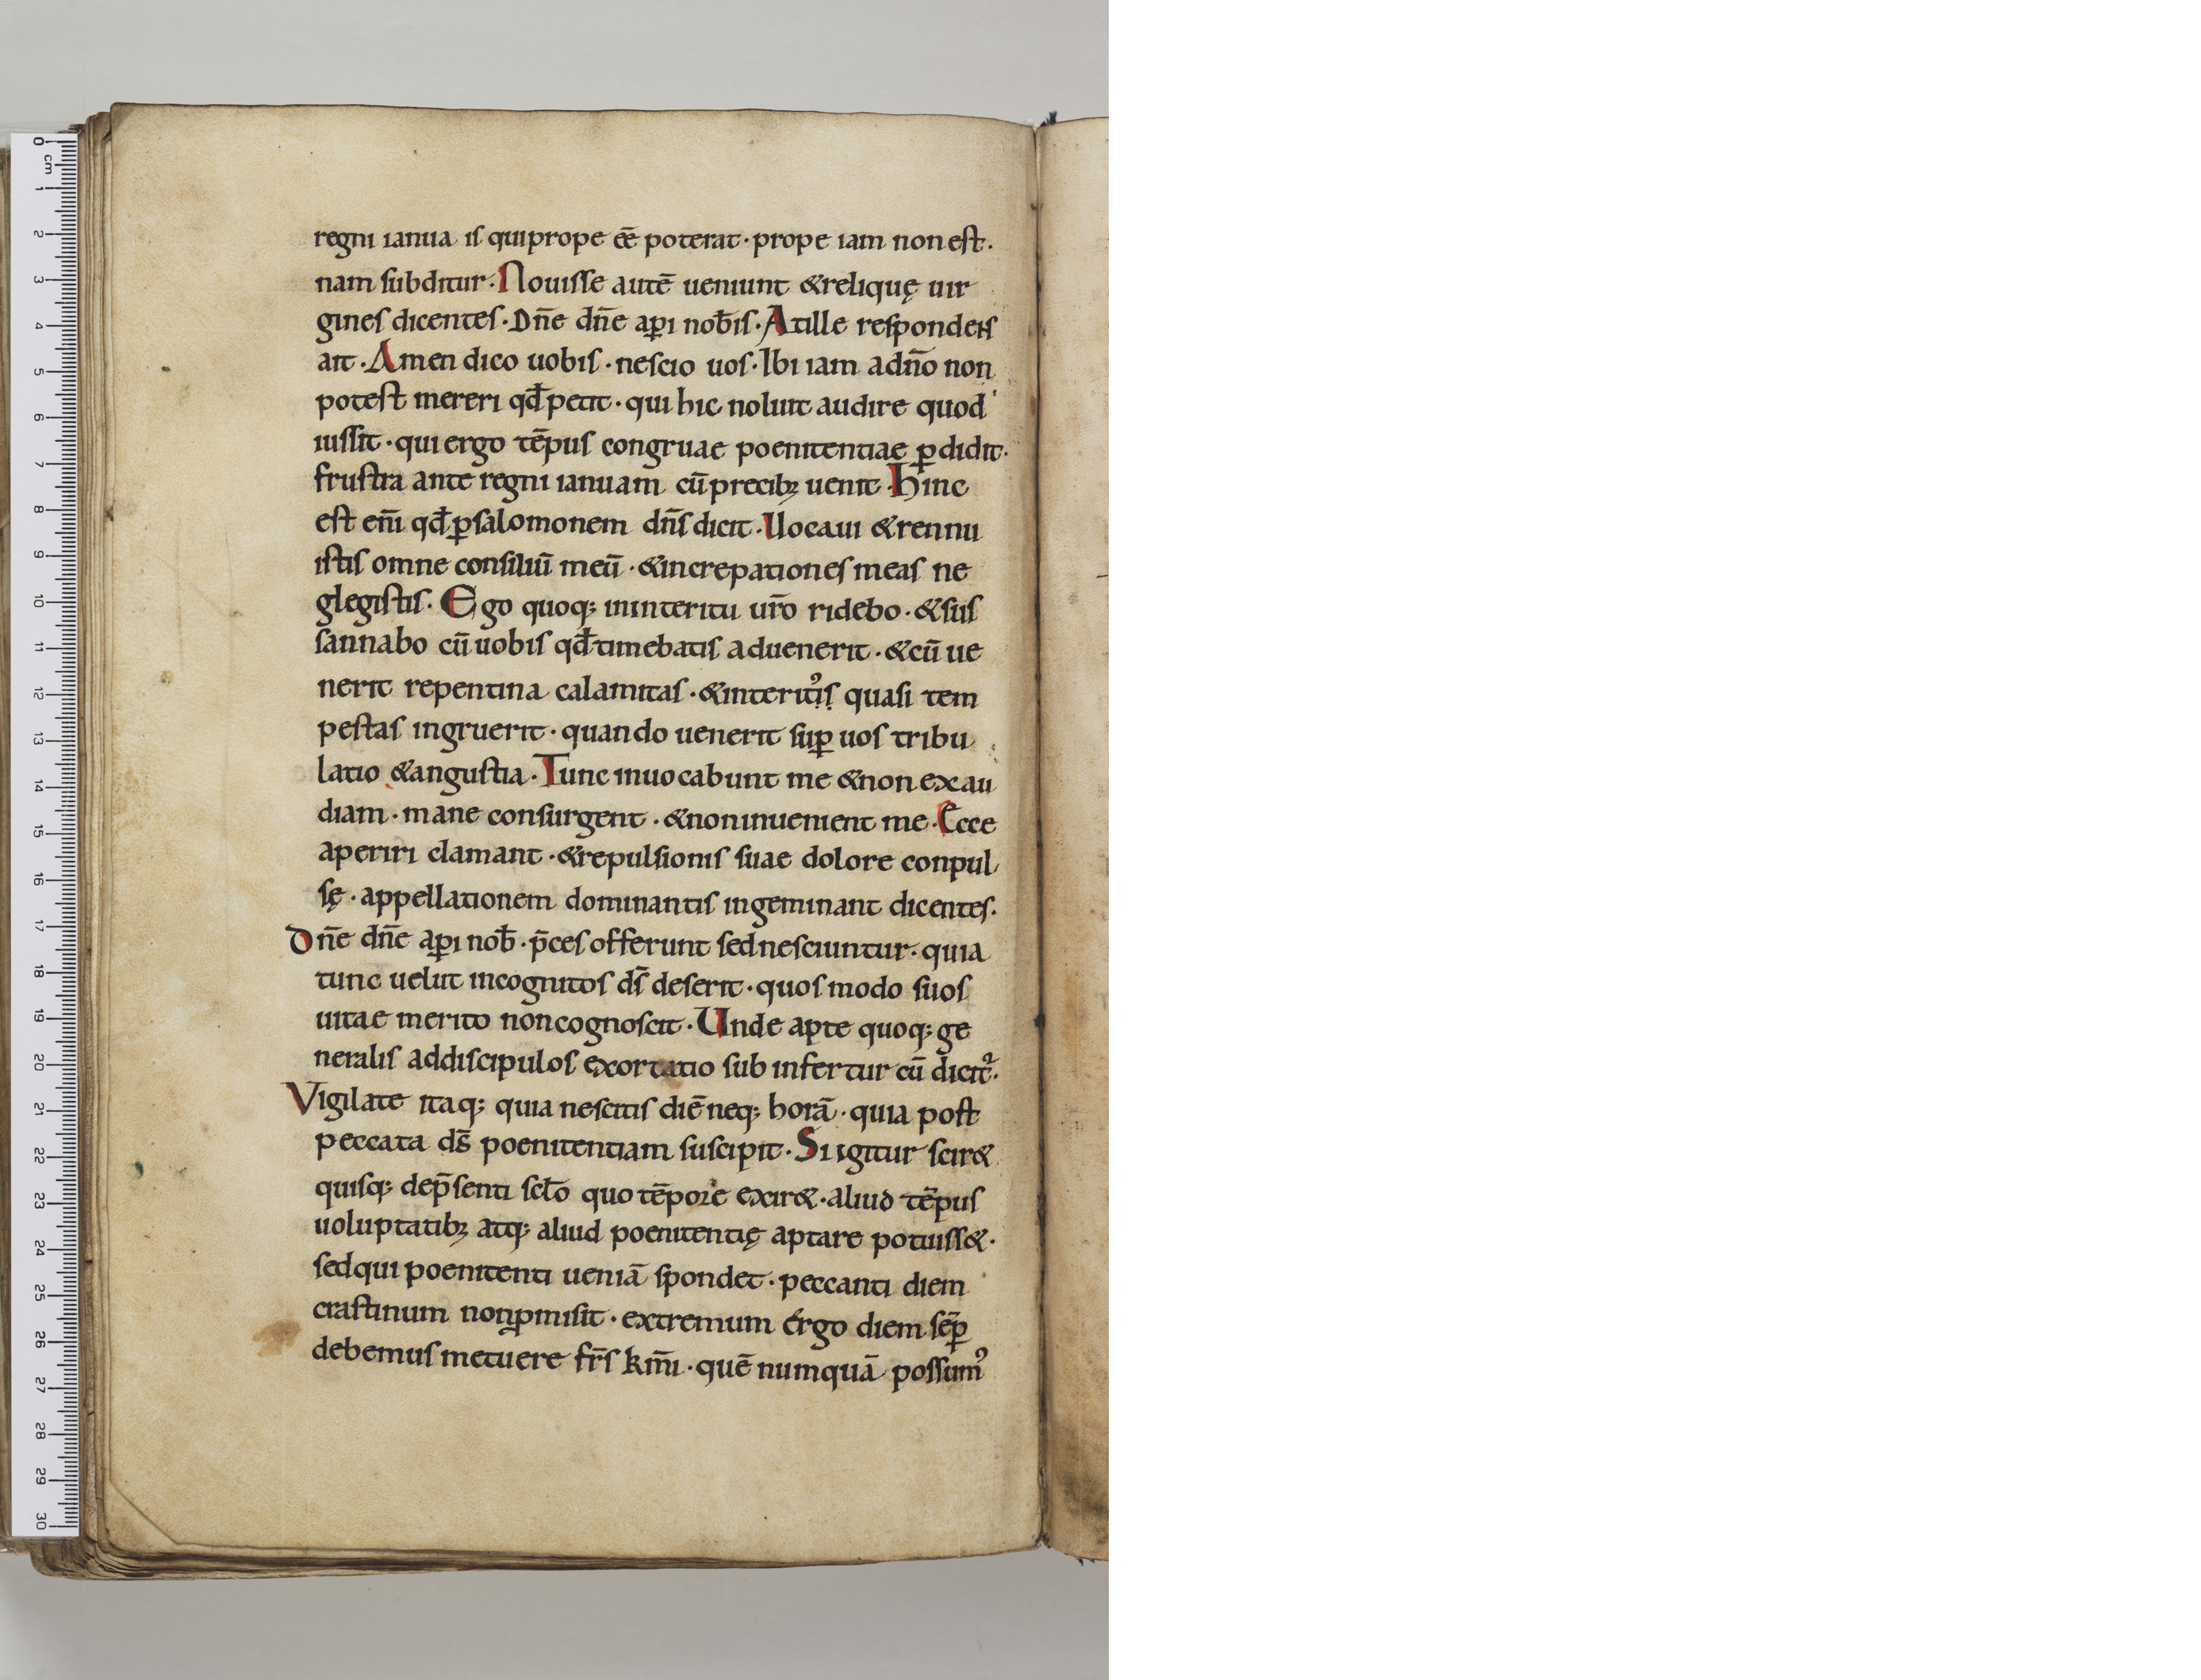 regni ianua is qui prope eē poterat · prope iam non est.
nam subditur · Nouisse autē ueniunt & reliquę uir
gines dicentes · Dn̄e dn̄e aꝑi nob̄is · At ille respondens
ait · Amen dico uobis · nescio uos · Ibi iam ad dn̄o non
potest mereri qđ petit · qui hic noluit audire quod
iussit · qui ergo tēpus congruae poenitentiae ꝑdidit ·
frustra ante regni ianuam cū precibꝫ uenit · Hinc
est eni̅ qđ ꝑ salomonem dn̄s dicit · Uocaui & rennu
istis omne consiliū meū · & increpationes meas ne
glegistis · Ego quoq; in interitu ur̄o ridebo · & sus
sannabo cū uobis qđ timebatis aduenerit · & cū ue
nerit repentina calamitas · & interit᾽is quasi tem
pestas ingruerit · quando uenerit suꝑ uos tribu
latio & angustia · Tunc inuocabunt me & non exau
diam · mane consurgent · & non inuenient me · Ecce
aperiri clamant · & repulsionis suae dolore conpul
sę · appellationem dominantis ingeminant dicentes ·
Dn̄e dn̄e aꝑi nob̄ · p̄ces offerunt sed nesciuntur · quia
tunc uelut incognitos ds̄ deserit · quos modo suos
uitae merito non cognoscit · Unde apte quoq; ge
neralis ad discipulos exortatio sub infertur cū dicit᷑ ·
Vigilate itaq; quia nescitis diē neq; horā · quia post
peccata ds̄ poenitentiam suscipit · Si igitur scir&
quisq; de p̄senti scl̄o quo tēpore exir& · aliud tēpus
uoluptatibꝫ atq; aliud poenitentię aptare potuiss& ·
sed qui poenitenti ueniā spondet · peccanti diem
crastinum non ꝓmisit · extremum ergo diem sēꝑ
debemus metuere fr̄s km̄i · quē numquā possum᾽
0 cm 1 2 3 4 5 6 7 8 9 10 11 12 13 14 15 16 17 18 19 20 21 22 23 24 25 26 27 28 29 30